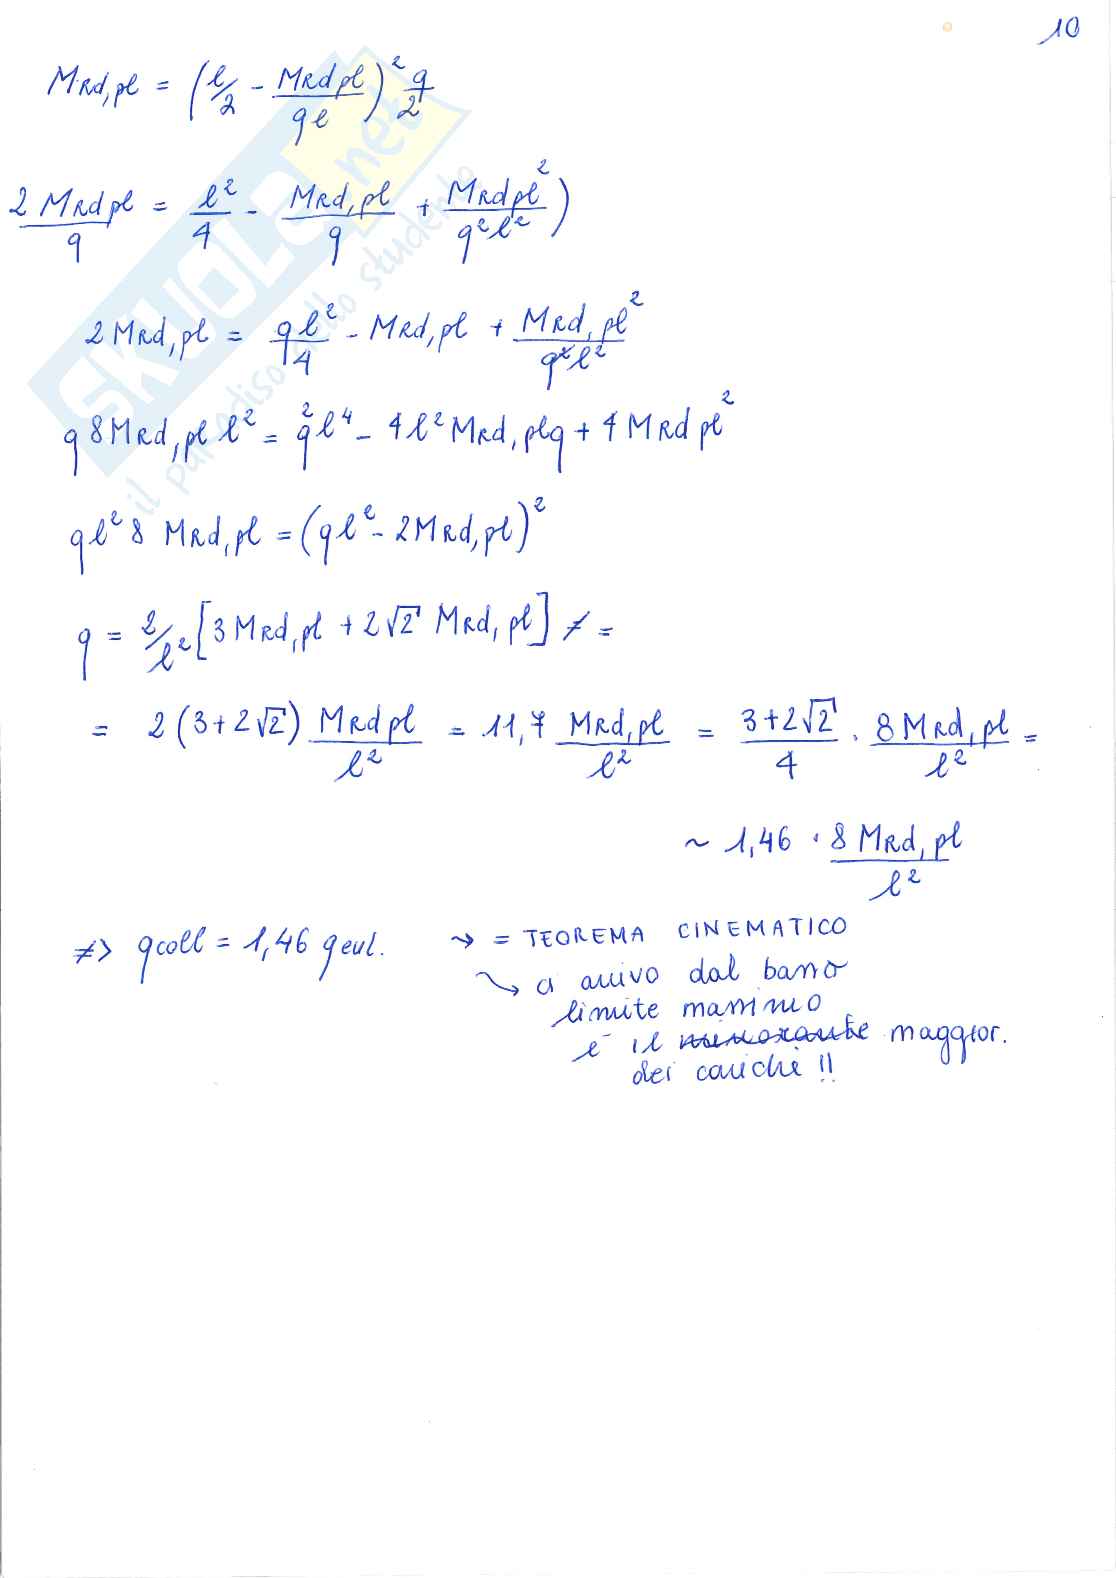 10
MRd,pl = (l/2 - MRdpl/ql)² q/2
2 MRdpl/q = l²/4 - MRd,pl/q + MRdpl²/q²l²)
2 MRd,pl = ql²/4 - MRd,pl + MRd,pl²/q²l²
q 8 MRd,pl l² = q²l⁴ - 4l² MRd,plq + 4 MRdpl²
ql² 8 MRd,pl = (ql² - 2MRd,pl)²
q = 2/l² [3 MRd,pl + 2√2 MRd,pl] ≠ =
= 2 (3+2√2) MRdpl/l² = 11,7 MRd,pl/l² = 3+2√2/4 · 8 MRd,pl/l² =
~ 1,46 · 8 MRd,pl/l²
≠> qcoll = 1,46 qeul. → = TEOREMA CINEMATICO
→ ci arrivo dal basso
limite massimo
è il minorante maggior.
dei carichi !!
SKUOLA.net
il paradiso dello studente